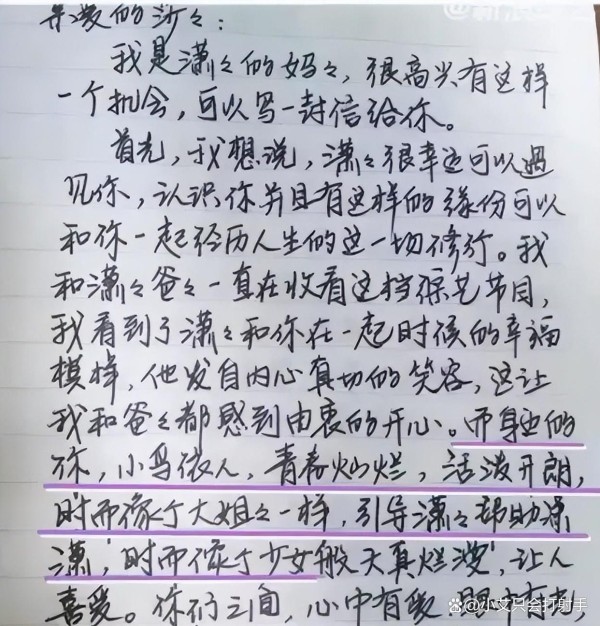 @新浪
亲爱的沙々：
我是潇々的妈々，很高兴有这样
一个机会，可以写一封信给你。
首先，我想说，潇々很幸运可以遇
见你，认识你并且有这样的缘份可以
和你一起经历人生的这一切修行。我
和潇々爸々一直在收看这档综艺节目，
我看到了潇々和你在一起时候的幸福
模样，他发自内心真切的笑容，这让
我和爸々都感到由衷的开心。而身边的
你，小鸟依人，青春灿烂，活泼开朗，
时而像个大姐々一样，引导潇々帮助潇
潇，时而像个少女般天真烂漫，让人
喜爱。你们之间，心中有爱，眼中有光，
@小艾只会打射手